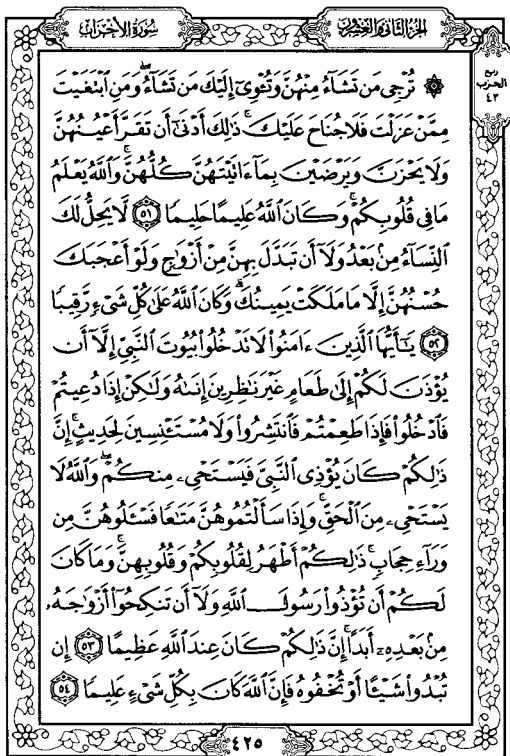 سُورَةُ الأَحْزَابِ
الجُزْءُ الثَّانِي وَالعِشْرُونَ
ربع
الحزب
٤٣
۞ تُرْجِى مَن تَشَآءُ مِنْهُنَّ وَتُـْٔوِىٓ إِلَيْكَ مَن تَشَآءُۖ وَمَنِ ٱبْتَغَيْتَ
مِمَّنْ عَزَلْتَ فَلَا جُنَاحَ عَلَيْكَۚ ذَٰلِكَ أَدْنَىٰٓ أَن تَقَرَّ أَعْيُنُهُنَّ
وَلَا يَحْزَنَّ وَيَرْضَيْنَ بِمَآ ءَاتَيْتَهُنَّ كُلُّهُنَّۚ وَٱللَّهُ يَعْلَمُ
مَا فِى قُلُوبِكُمْۚ وَكَانَ ٱللَّهُ عَلِيمًا حَلِيمًا ٥١ لَّا يَحِلُّ لَكَ
ٱلنِّسَآءُ مِنۢ بَعْدُ وَلَآ أَن تَبَدَّلَ بِهِنَّ مِنْ أَزْوَٰجٍ وَلَوْ أَعْجَبَكَ
حُسْنُهُنَّ إِلَّا مَا مَلَكَتْ يَمِينُكَۗ وَكَانَ ٱللَّهُ عَلَىٰ كُلِّ شَىْءٍ رَّقِيبًا
٥٢ يَـٰٓأَيُّهَا ٱلَّذِينَ ءَامَنُوا۟ لَا تَدْخُلُوا۟ بُيُوتَ ٱلنَّبِىِّ إِلَّآ أَن
يُؤْذَنَ لَكُمْ إِلَىٰ طَعَامٍ غَيْرَ نَـٰظِرِينَ إِنَىٰهُ وَلَـٰكِنْ إِذَا دُعِيتُمْ
فَٱدْخُلُوا۟ فَإِذَا طَعِمْتُمْ فَٱنتَشِرُوا۟ وَلَا مُسْتَـْٔنِسِينَ لِحَدِيثٍۚ إِنَّ
ذَٰلِكُمْ كَانَ يُؤْذِى ٱلنَّبِىَّ فَيَسْتَحْىِۦ مِنكُمْۖ وَٱللَّهُ لَا
يَسْتَحْىِۦ مِنَ ٱلْحَقِّۚ وَإِذَا سَأَلْتُمُوهُنَّ مَتَـٰعًا فَسْـَٔلُوهُنَّ مِن
وَرَآءِ حِجَابٍۚ ذَٰلِكُمْ أَطْهَرُ لِقُلُوبِكُمْ وَقُلُوبِهِنَّۚ وَمَا كَانَ
لَكُمْ أَن تُؤْذُوا۟ رَسُولَ ٱللَّهِ وَلَآ أَن تَنكِحُوٓا۟ أَزْوَٰجَهُۥ
مِنۢ بَعْدِهِۦٓ أَبَدًاۚ إِنَّ ذَٰلِكُمْ كَانَ عِندَ ٱللَّهِ عَظِيمًا ٥٣ إِن
تُبْدُوا۟ شَيْـًٔا أَوْ تُخْفُوهُ فَإِنَّ ٱللَّهَ كَانَ بِكُلِّ شَىْءٍ عَلِيمًا ٥٤
٤٢٥